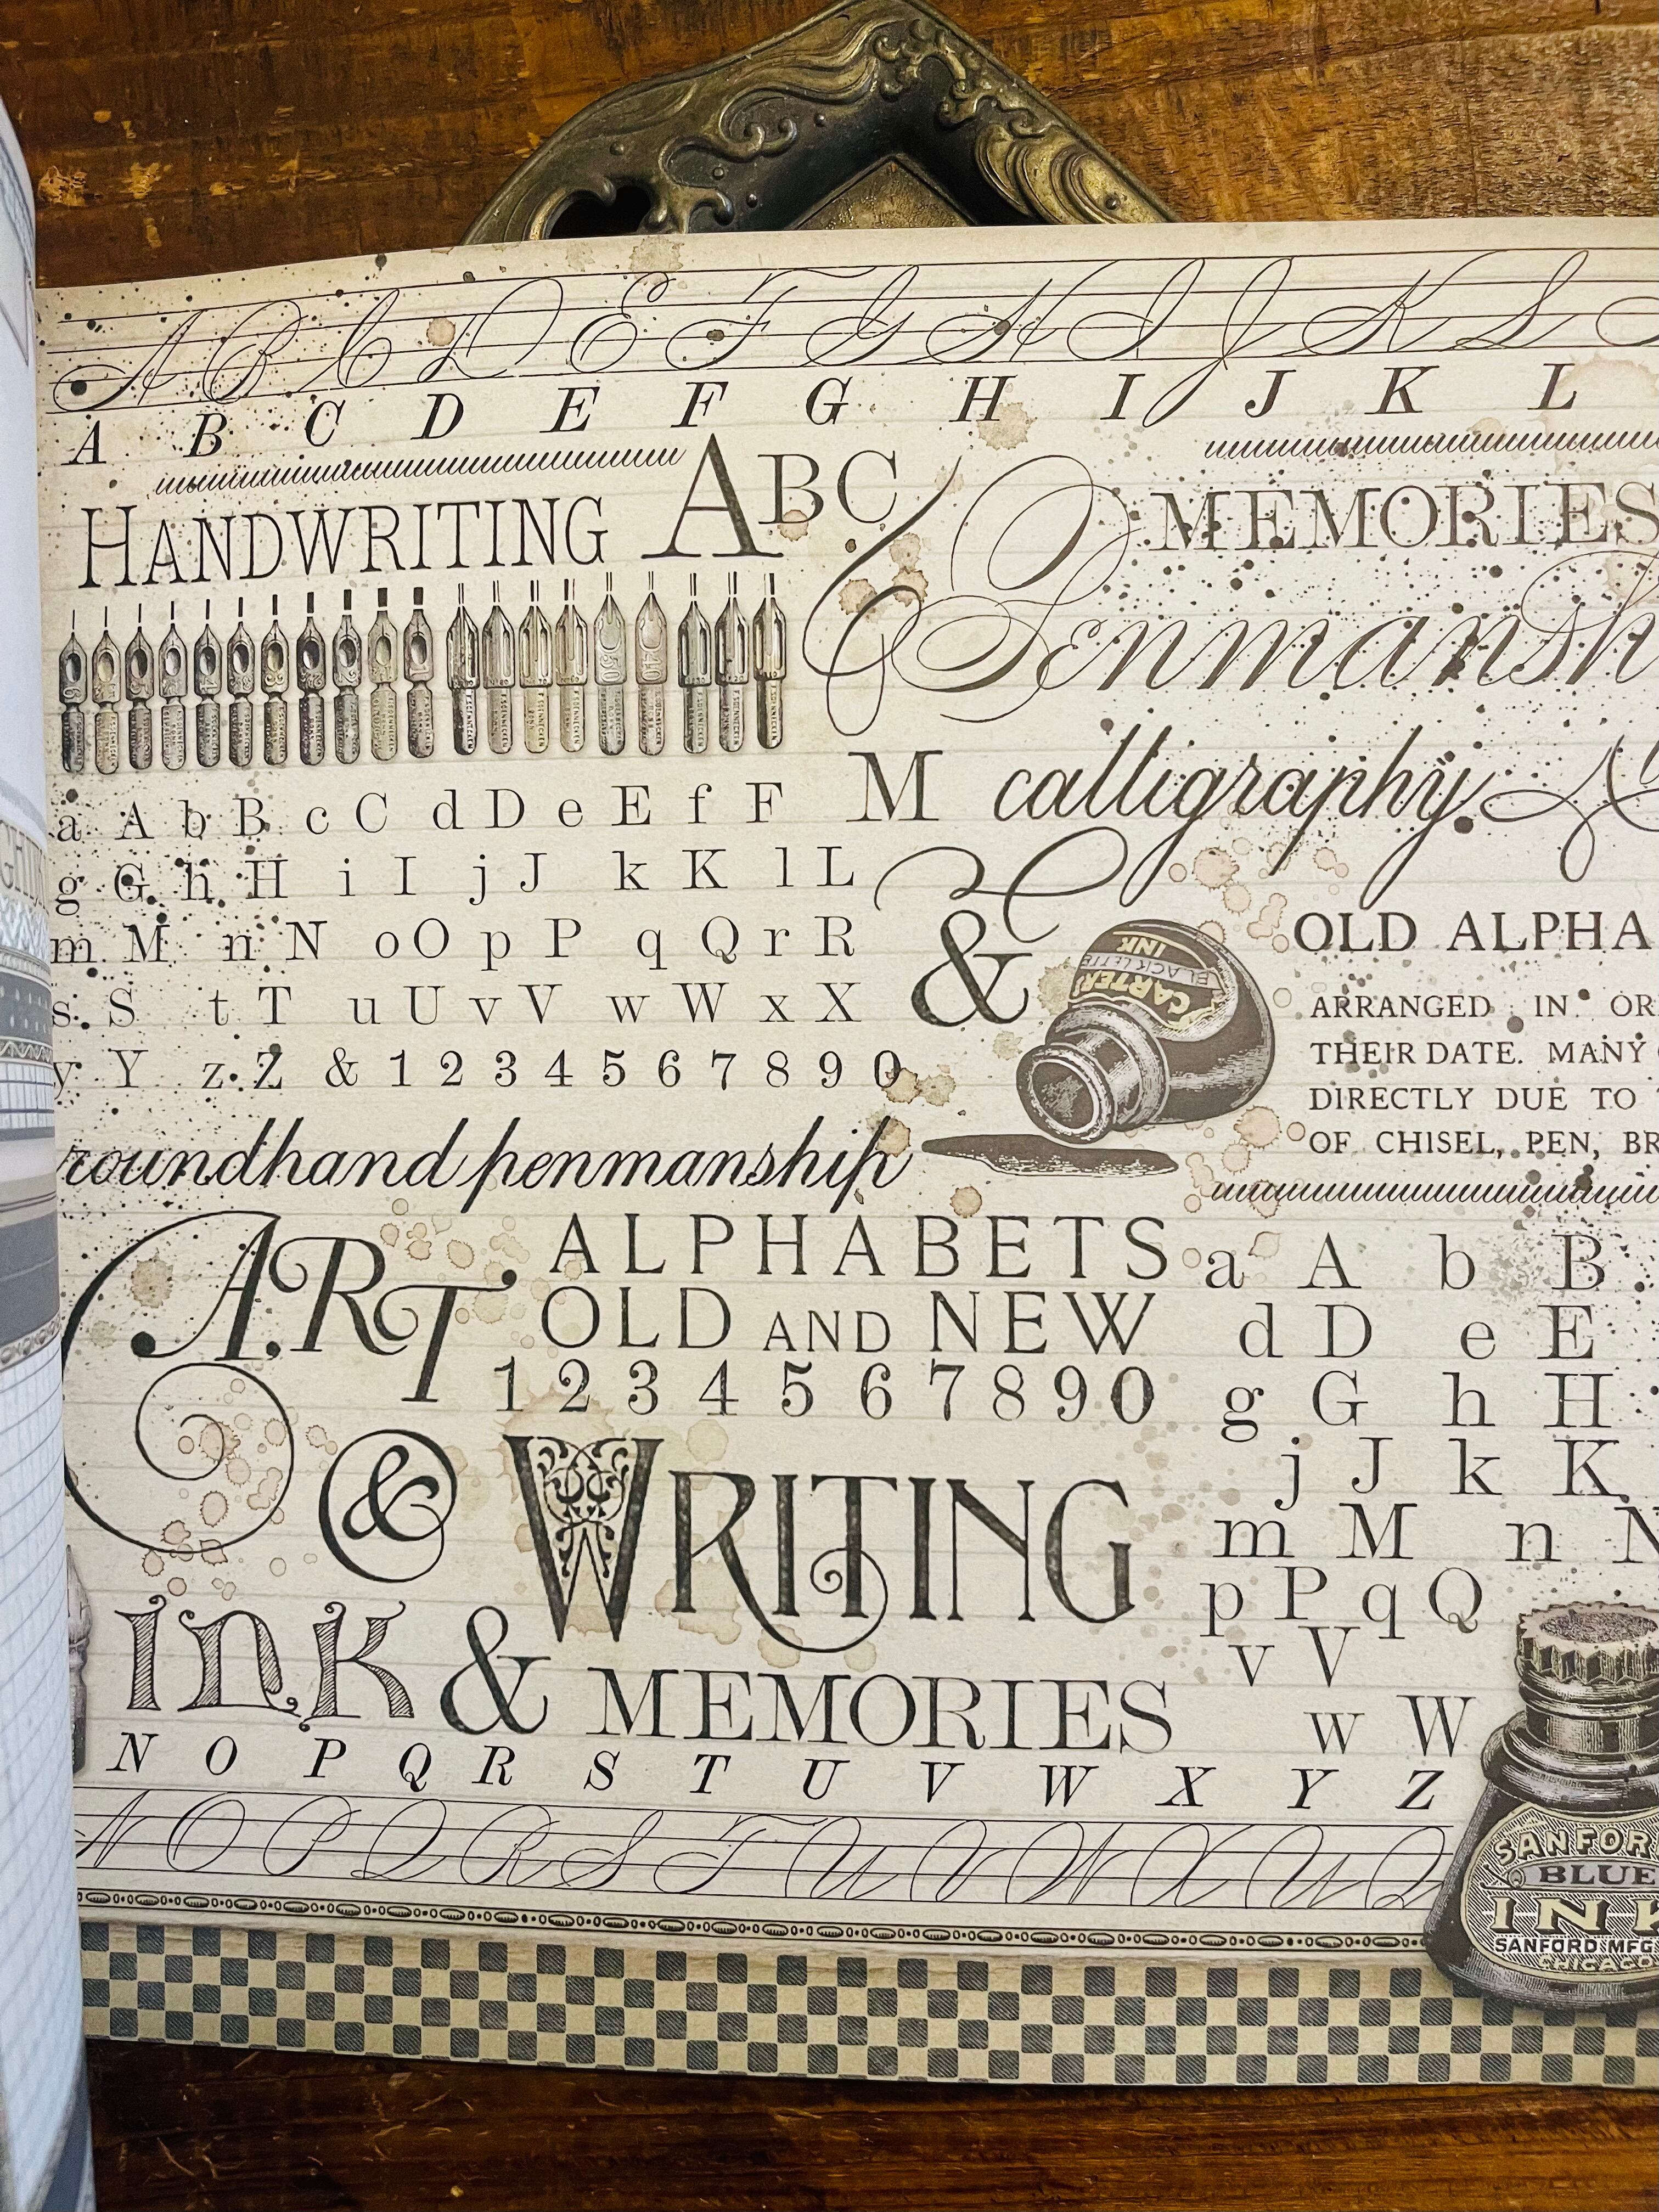 A B C D E F G H I J K L
A B C D E F G H I J K L
HANDWRITING ABC
MEMORIES
M calligraphy
a A b B c C d D e E f F
g G h H i I j J k K l L
m M n N o O p P q Q r R
s S t T u U v V w W x X
y Y z Z & 1 2 3 4 5 6 7 8 9 0
&
CARTER'S
BLACK LETTER
INK
OLD ALPHA
ARRANGED IN OR
THEIR DATE. MANY
DIRECTLY DUE TO
OF CHISEL, PEN, BR
roundhand penmanship
ART
ALPHABETS
OLD AND NEW
1 2 3 4 5 6 7 8 9 0
& WRITING
INK & MEMORIES
a A b B
d D e E
g G h H
j J k K
m M n N
p P q Q
v V
w W
N O P Q R S T U V W X Y Z
N O P Q R S T U V W X Y Z
SANFOR
BLUE
INK
SANFORD MFG
CHICAGO